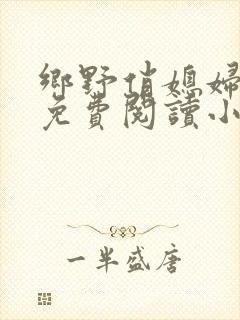 鄉野俏媳婦
免費閱讀小
一半盛唐